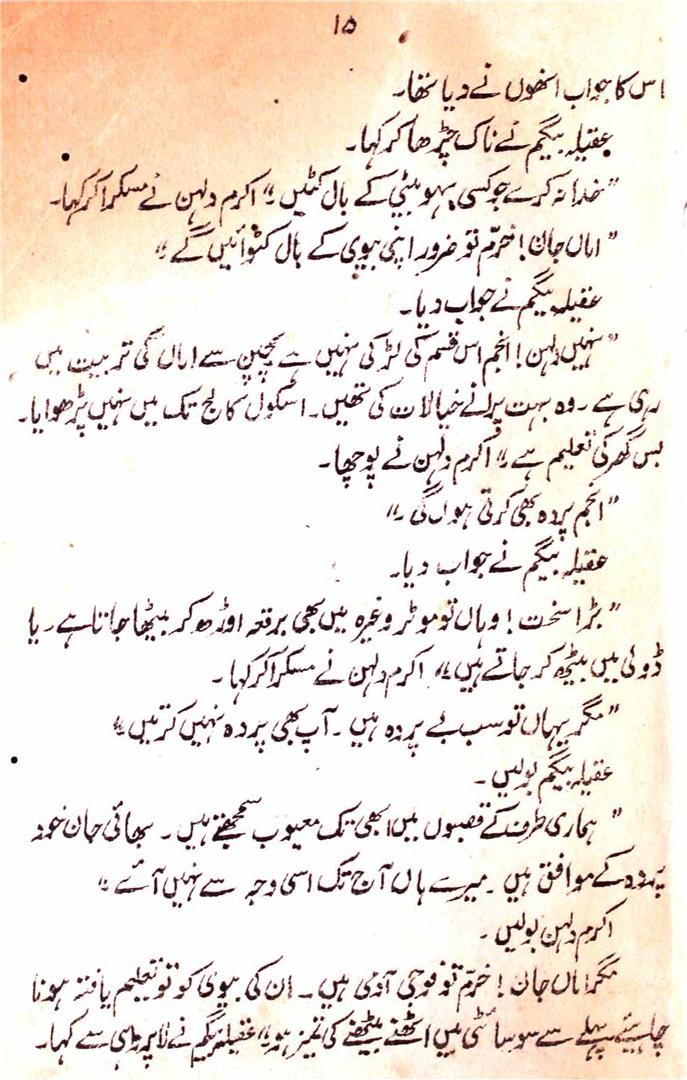 ۱۵
اس کا جواب انھوں نے دیا تھا۔
عقیلہ بیگم نے ناک چڑھا کر کہا۔
"خدا نہ کرے جو کسی بہو بیٹی کے بال کٹیں" اکرم دلہن نے مسکرا کر کہا۔
"اماں جان! خرّم تو ضرور اپنی بیوی کے بال کٹوائیں گے"
عقیلہ بیگم نے جواب دیا۔
"نہیں دلہن! انجم اس قسم کی لڑکی نہیں ہے بچپن سے اماں کی تربیت میں
رہی ہے۔ وہ بہت پرانے خیالات کی تھیں۔ اسکول کالج تک میں نہیں پڑھوایا۔
بس گھر کی تعلیم ہے" اکرم دلہن نے پوچھا۔
"انجم پردہ بھی کرتی ہوں گی۔"
عقیلہ بیگم نے جواب دیا۔
"بڑا سخت! وہاں تو موٹر وغیرہ میں بھی برقعہ اوڑھ کر بیٹھا جاتا ہے۔ یا
ڈولی میں بیٹھ کر جاتے ہیں" اکرم دلہن نے مسکرا کر کہا۔
"مگر یہاں تو سب بے پردہ ہیں۔ آپ بھی پردہ نہیں کرتیں"
عقیلہ بیگم بولیں۔
"ہماری طرف کے قصبوں میں ابھی تک معیوب سمجھتے ہیں۔ بھائی جان خود
پردہ کے موافق ہیں۔ میرے ہاں آج تک اسی وجہ سے نہیں آئے"
اکرم دلہن بولیں۔
مگر اماں جان! خرّم تو فوجی آدمی ہیں۔ ان کی بیوی کو تو تعلیم یافتہ ہونا
چاہیئے پہلے سے سوسائٹی میں اٹھنے بیٹھنے کی تمیز ہو" عقیلہ بیگم نے لاپرواہی سے کہا۔